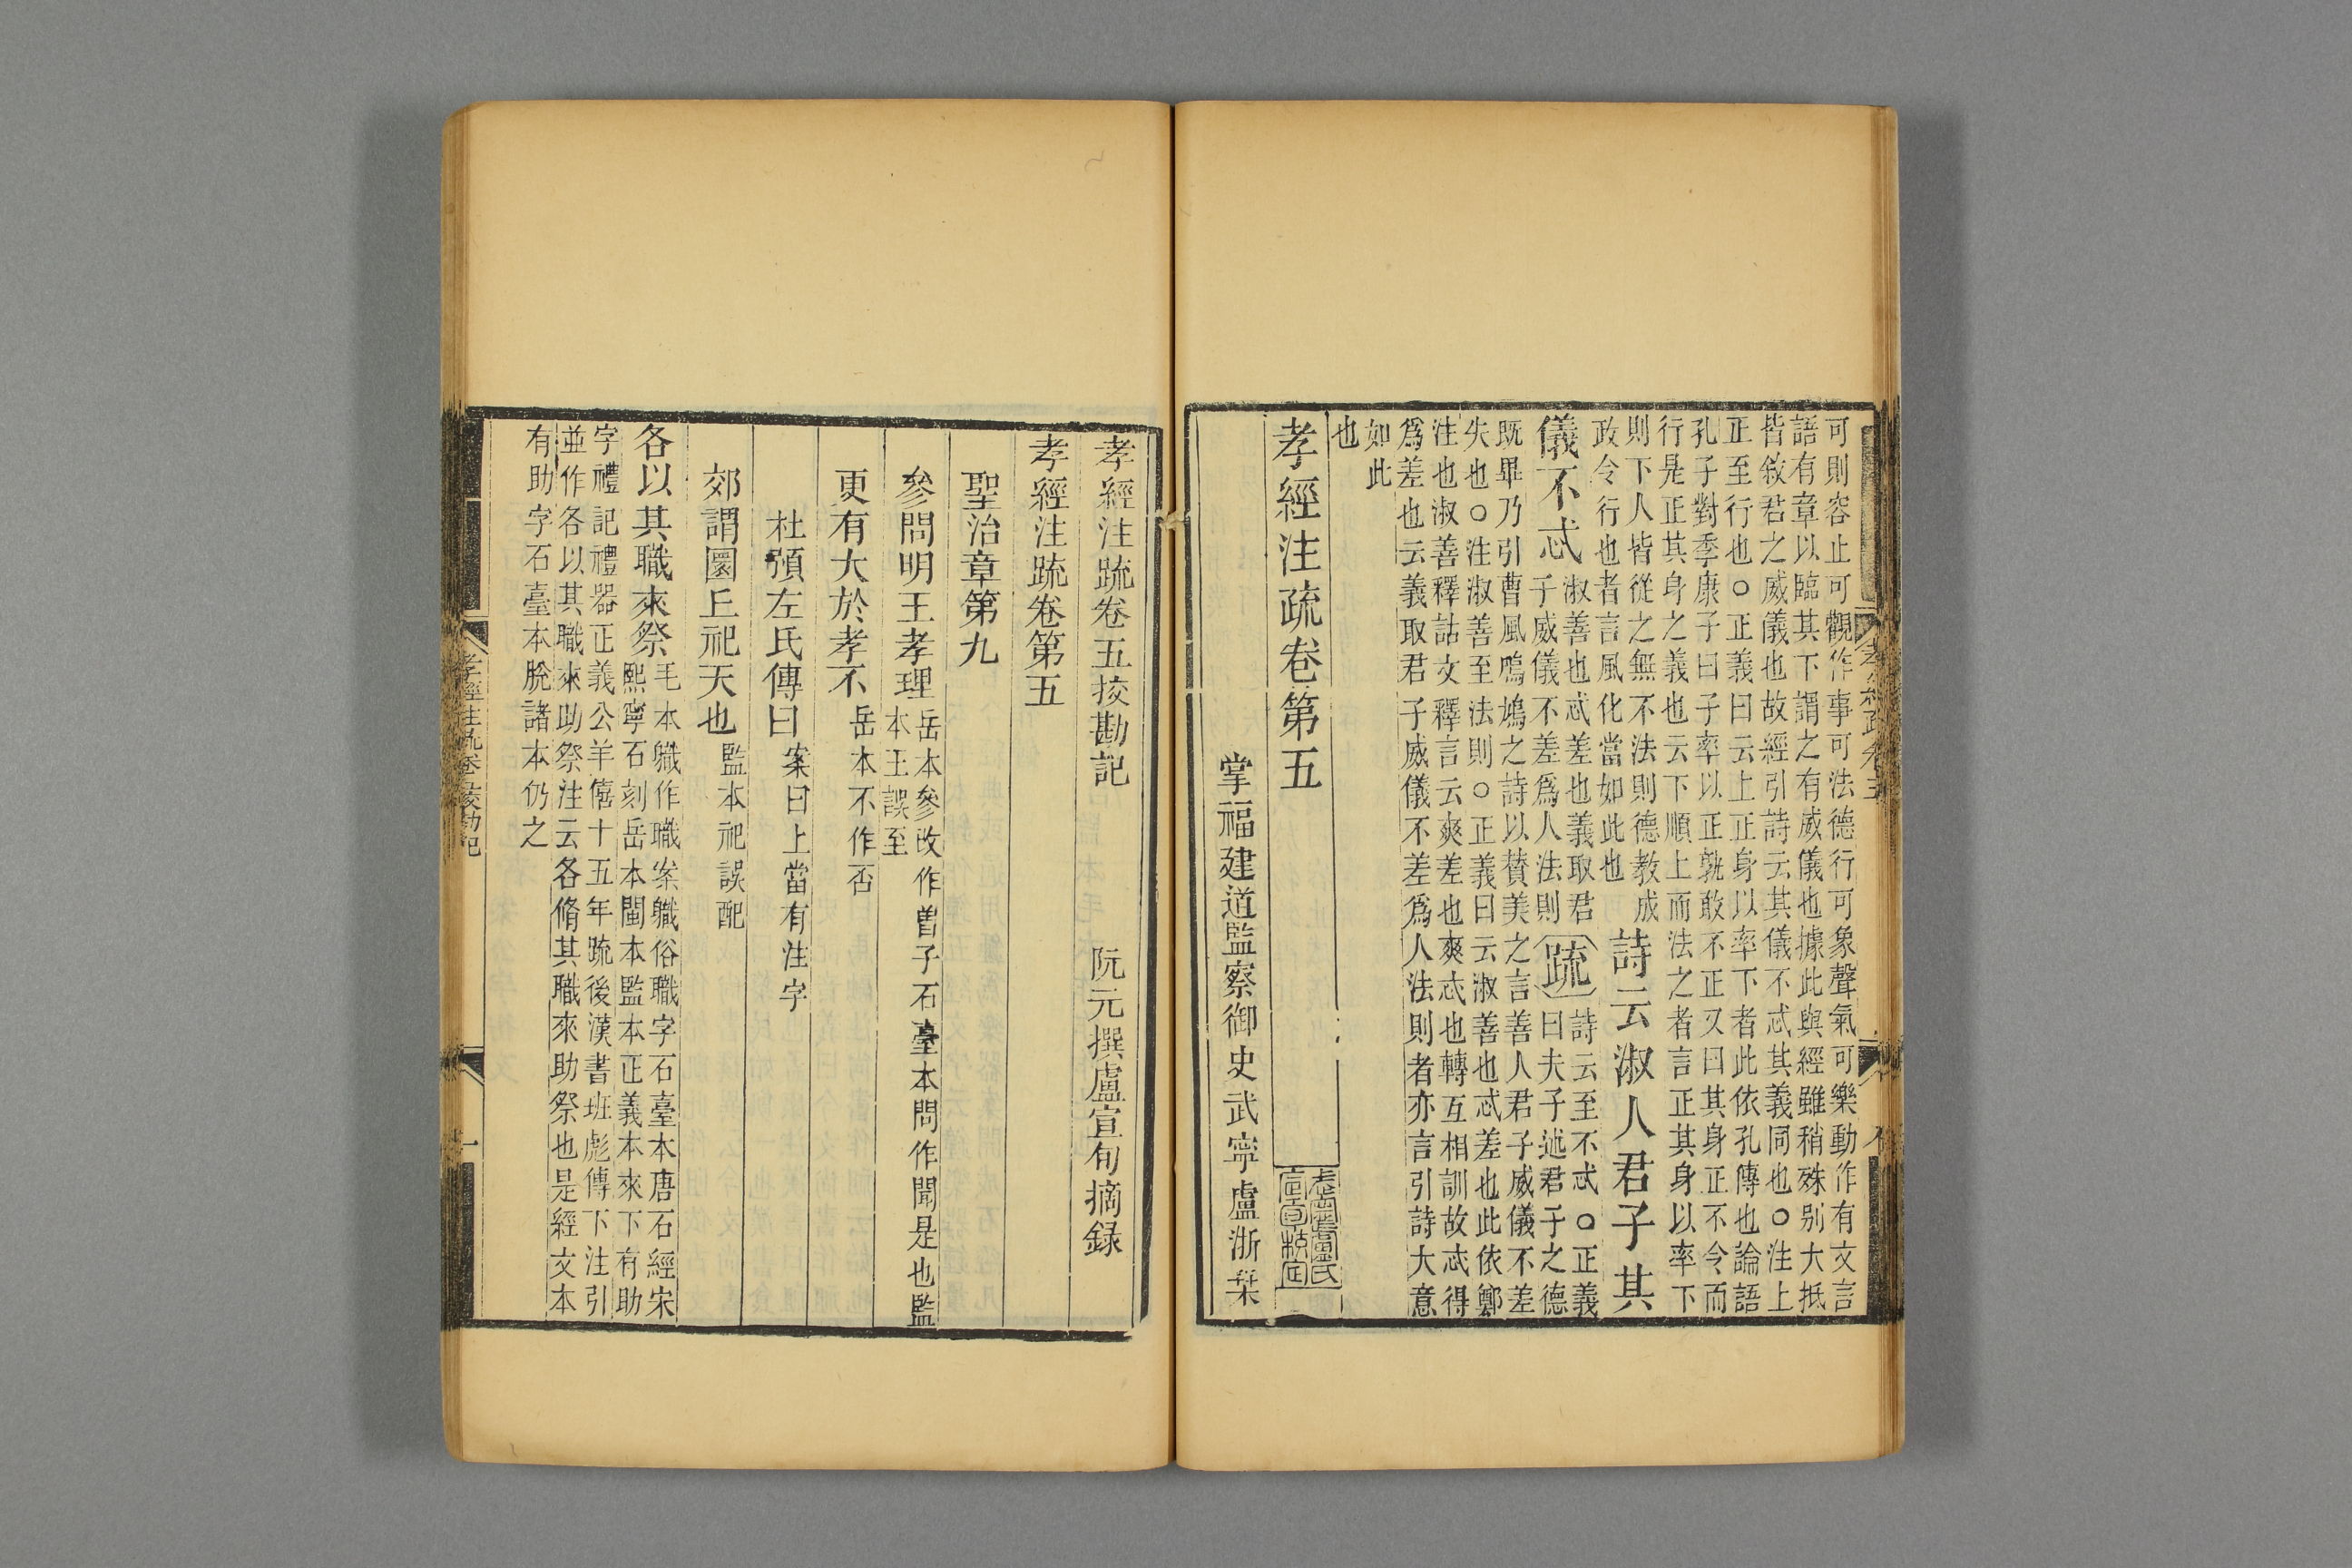 可則容止可觀作事可法德行可象聲氣可樂動作有文言
語有章以臨其下謂之有威儀也據此與經雖稍殊别大抵
皆敘君之威儀也故經引詩云其儀不忒其義同也○注上
正至行也○正義曰云上正身以率下者此依孔傳也論語
孔子對季康子曰子率以正孰敢不正又曰其身正不令而
行是正其身之義也云下順上而法之者言正其身以率下
則下人皆從之無不法則德教成
政令行也者言風化當如此也
詩云淑人君子其
儀不忒
淑善也忒差也義取君
子威儀不差爲人法則
疏
詩云至不忒○正義
曰夫子述君子之德
既畢乃引曹風鳲鳩之詩以賛美之言善人君子威儀不差
失也○注淑善至法則○正義曰云淑善也忒差也此依鄭
注也淑善釋詁文釋言云爽差也爽忒也轉互相訓故忒得
爲差也云義取君子威儀不差爲人法則者亦言引詩大意
如此
也
孝經注疏卷第五
掌福建道監察御史武寧盧浙栞
孝經注疏卷五挍勘記
阮元撰盧宣旬摘録
孝經注疏卷第五
聖治章第九
參問明王孝理
岳本參改作曽子石臺本問作聞是也監
本王誤至
更有大於孝不
岳本不作否
杜預左氏傳曰
案曰上當有注字
郊謂圜丘祀天也
監本祀誤配
各以其職來祭
毛本職作軄案軄俗職字石臺本唐石經宋
熙寧石刻岳本閩本監本正義本來下有助
字禮記禮器正義公羊僖十五年疏後漢書班彪傳下注引
並作各以其職來助祭注云各脩其職來助祭也是經文本
有助字石臺本脫諸本仍之
孝經注疏卷五挍勘記
一